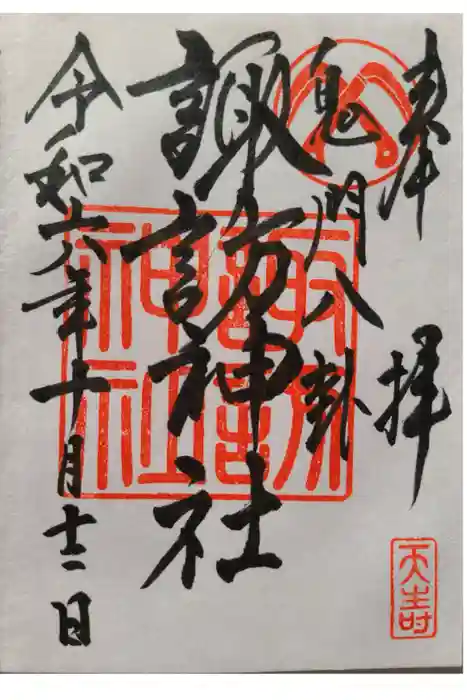 奉拝
鬼門八卦
諏訪神社
令和六年十月十二日
諏訪
神社